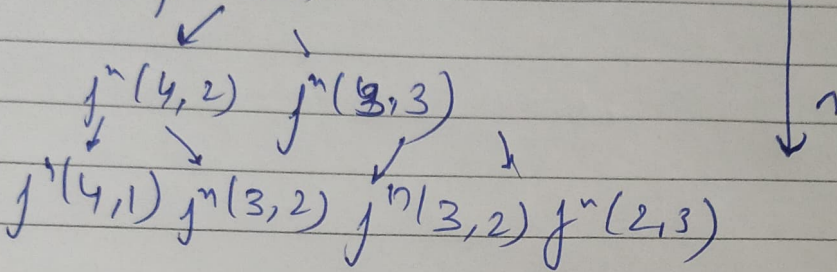 fn(4,2) fn(3,3)
fn(4,1) fn(3,2) fn(3,2) fn(2,3)